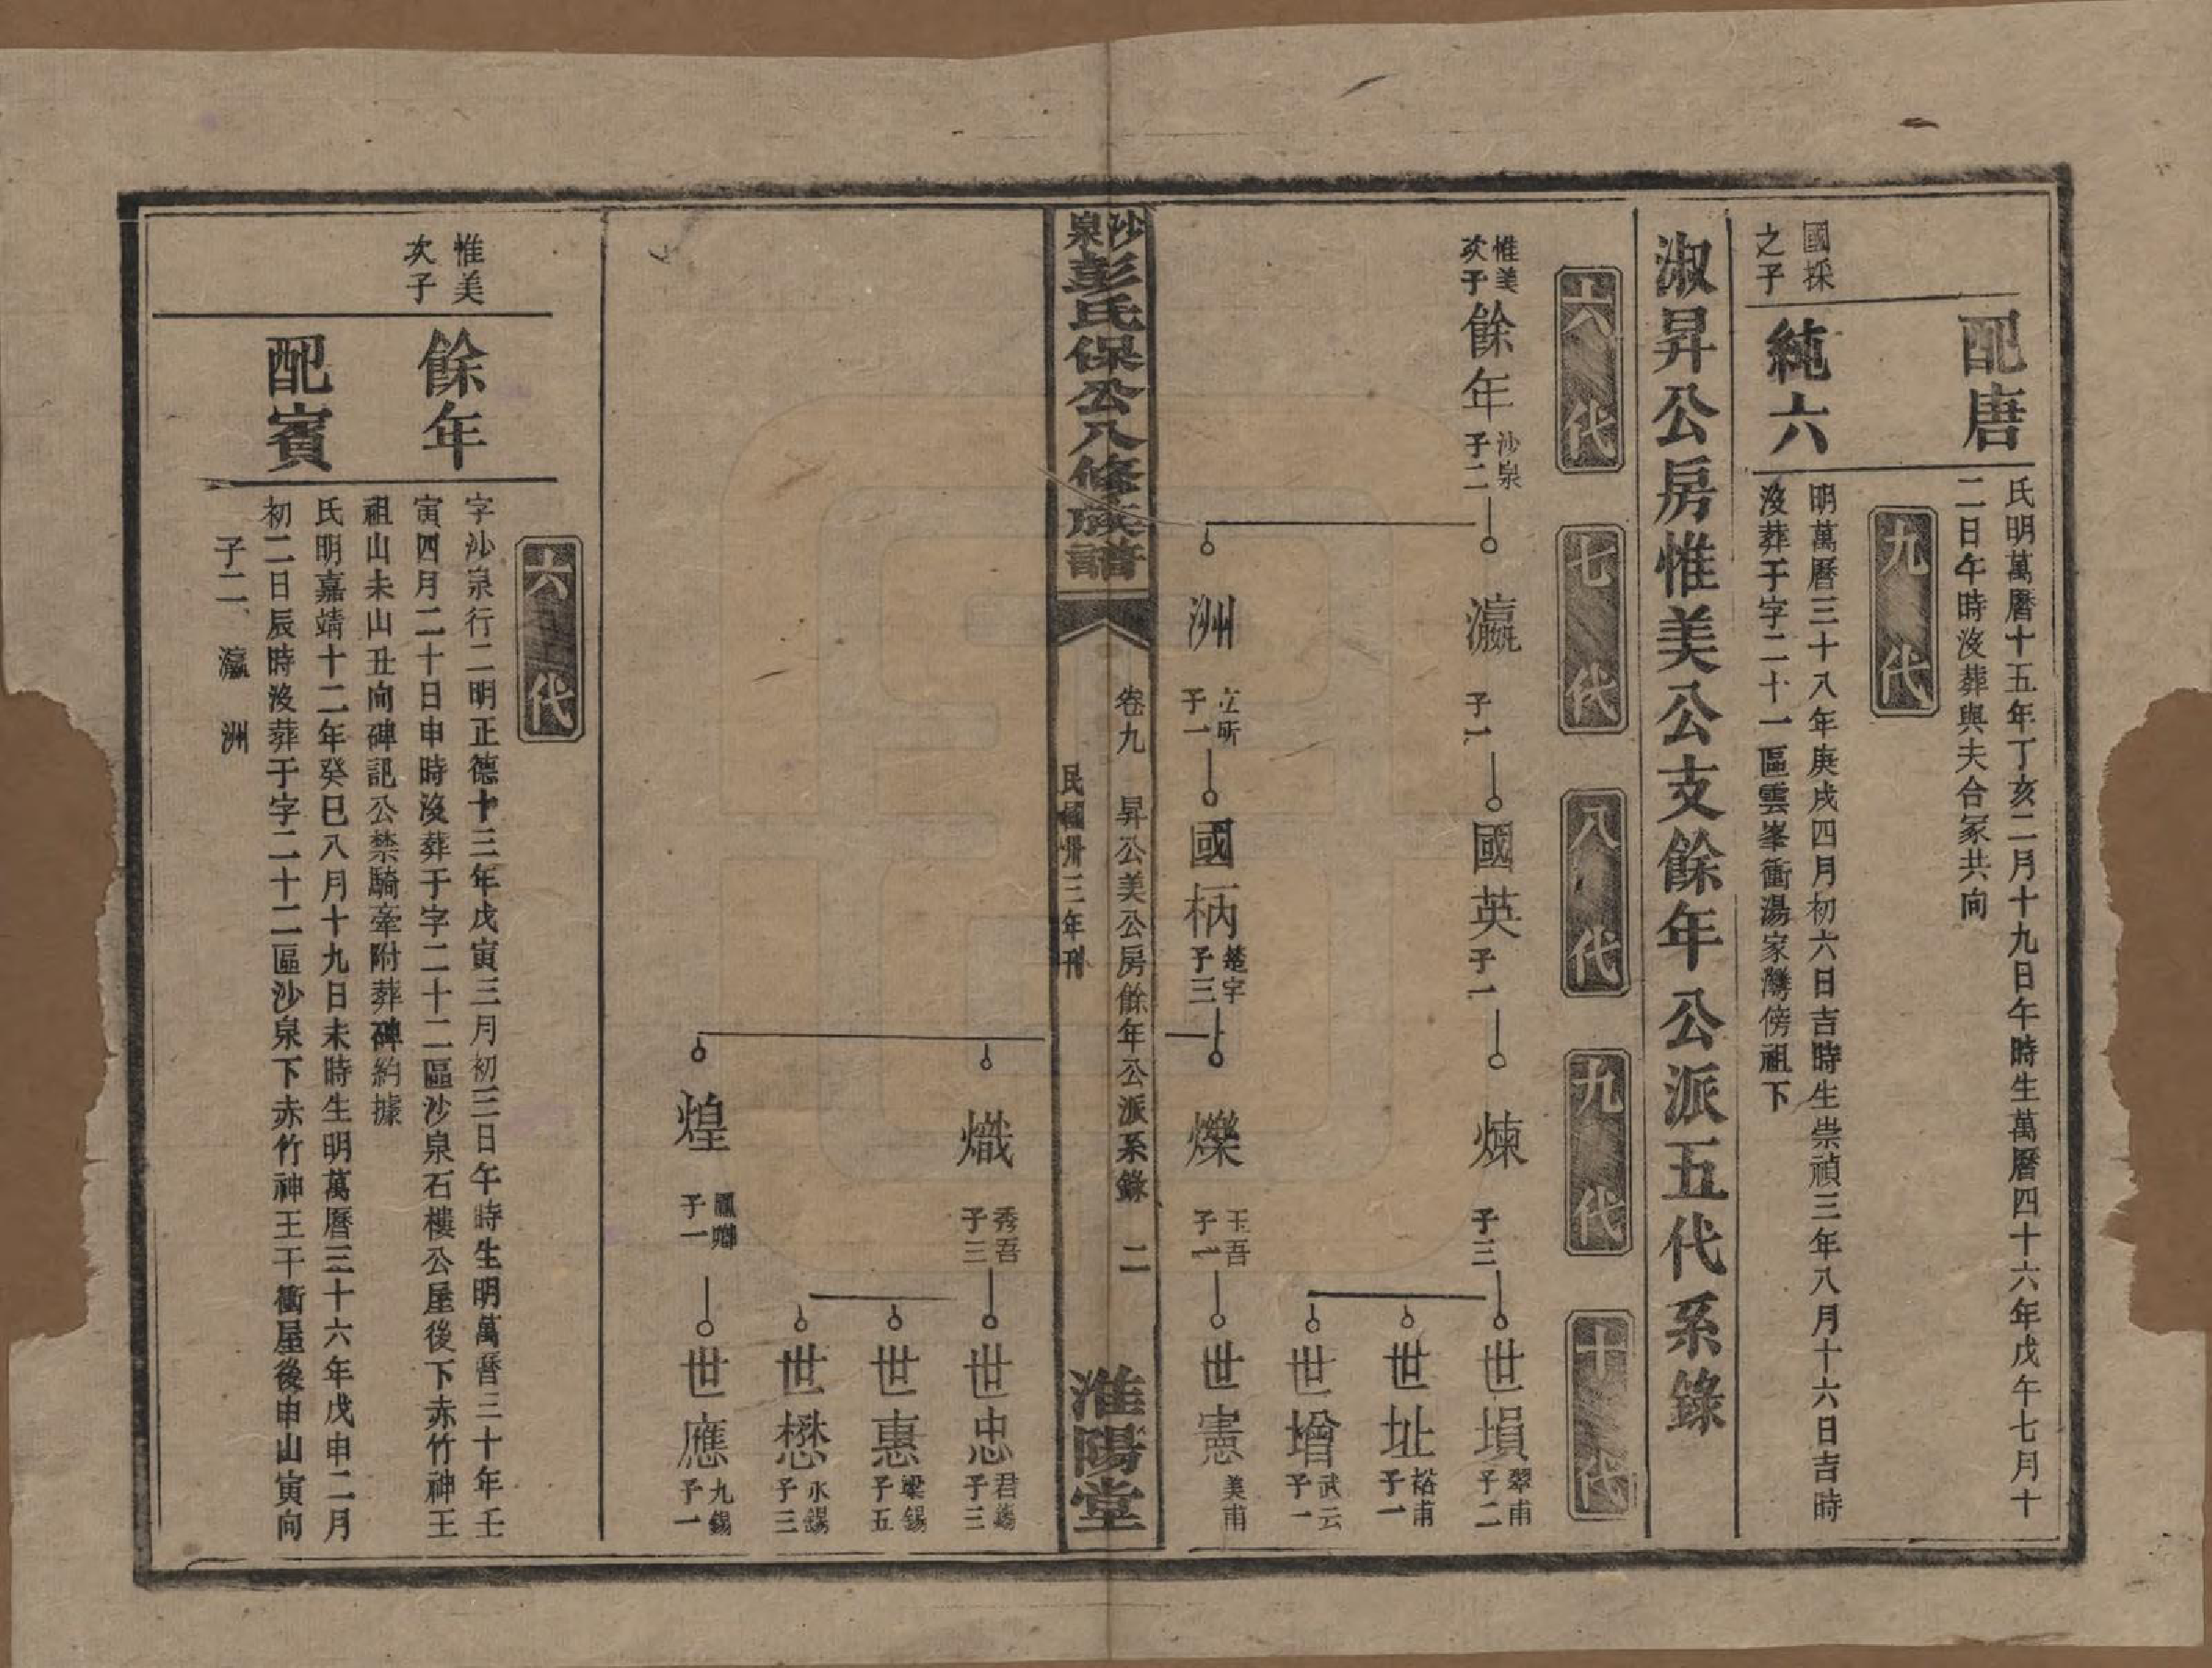 配唐
氏明萬曆十五年丁亥二月十九日午時生萬曆四十六年戊午七月十
二日午時沒葬與夫合冢共向
九代
國採
之子
純六
明萬曆三十八年庚戌四月初六日吉時生崇禎三年八月十六日吉時
沒葬于字二十一區雲峯衝湯家灣傍祖下
淑昇公房惟美公支餘年公派五代系錄
六代
七代
八代
九代
十代
惟美
次子
餘年
沙泉
子二
瀛
子一
國英
子一
煉
子三
世塤
翠甫
子二
世址
裕甫
子一
世增
武云
子一
洲
立所
子一
國柄
楚宇
子三
爍
玉吾
子一
世憲
美甫
沙泉彭氏保公八修族譜
卷九
昇公美公房餘年公派系錄
二
民國卅三年刊
淮陽堂
熾
秀吾
子三
世忠
君錫
子三
世惠
梁錫
子五
世懋
永錫
子三
煌
子一
世應
九錫
子一
六代
惟美
次子
餘年
字沙泉行二明正德十三年戊寅三月初三日午時生明萬曆三十年壬
寅四月二十日申時沒葬于字二十二區沙泉石樓公屋後下赤竹神王
祖山未山丑向碑記公禁騎牽附葬碑約據
配賓
氏明嘉靖十二年癸巳八月十九日未時生明萬曆三十六年戊申二月
初二日辰時沒葬于字二十二區沙泉下赤竹神王干衝屋後申山寅向
子二、瀛 洲